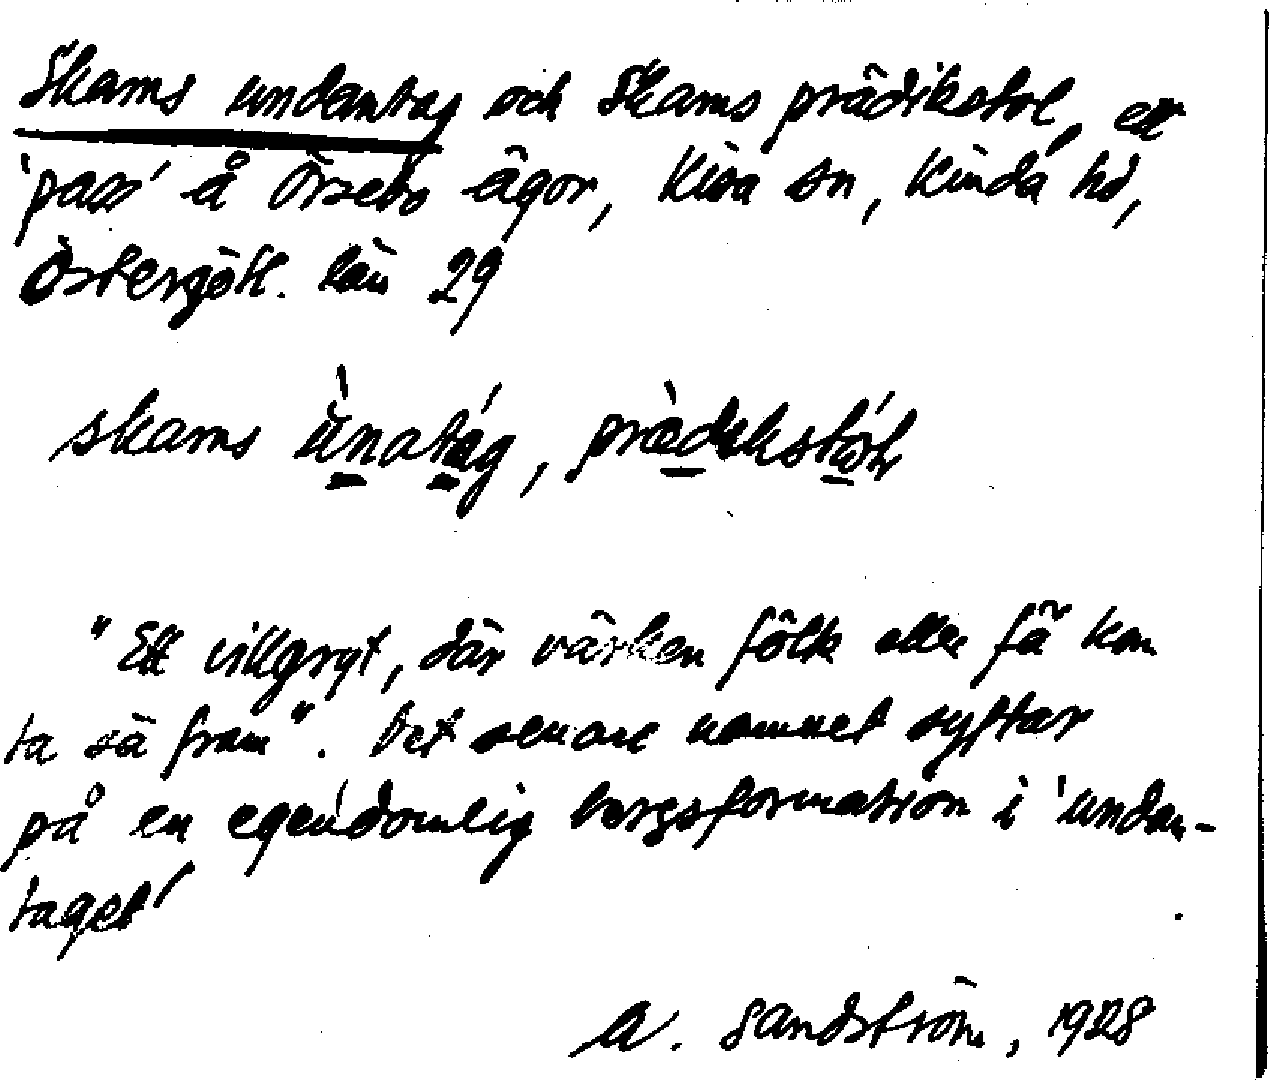 Skams undantag och Skams prädikstol, ett
'pass' å Örsebo ägor, Kisa sn, Kinda hd,
Östergötl. län 29
skams ùnatág, prèdikstól
"Ett villgryt, där värken fôlk eller fä kan
ta sä fram". Det senare namnet syftar
på en egendomlig bergsformation i 'undan-
taget'
A. Sandström, 1928